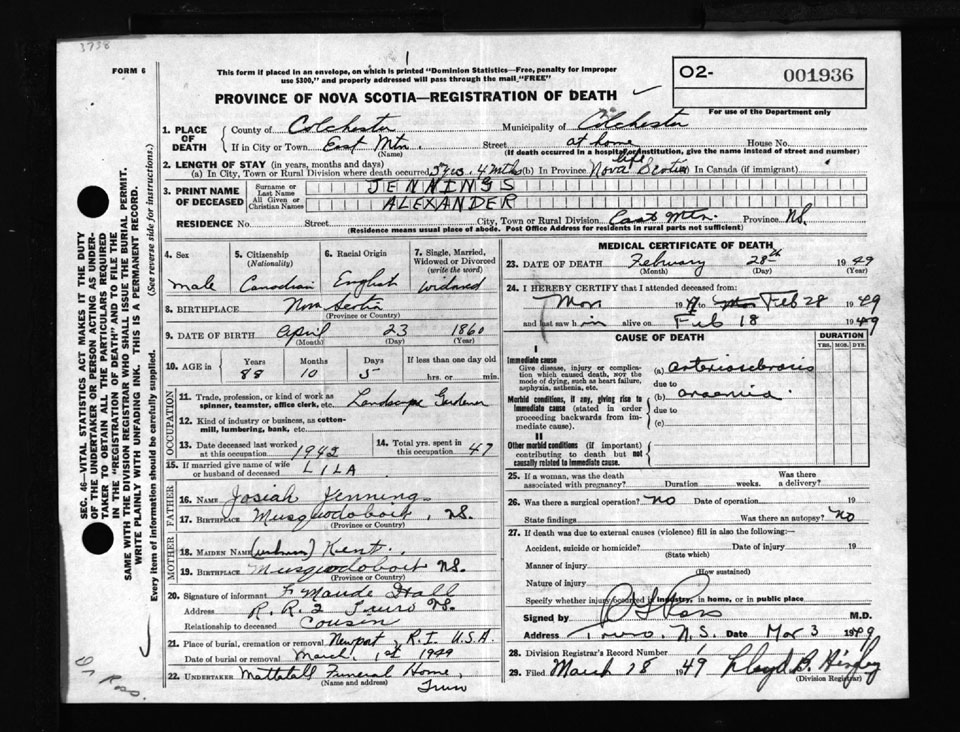 3738
FORM 6
This form if placed in an envelope, on which is printed "Dominion Statistics—Free, penalty for improper
use $300," and properly addressed will pass through the mail, "FREE"
PROVINCE OF NOVA SCOTIA—REGISTRATION OF DEATH
O2- 001936
For use of the Department only
1. PLACE OF DEATH
County of Colchester Municipality of Colchester
If in City or Town East Mtn. Street at home House No.
(Name) (If death occurred in hospital or institution, give the name instead of street and number)
2. LENGTH OF STAY (in years, months and days)
(a) In City, Town or Rural Division where death occurred 5 yrs. 4 mths (b) In Province Nova Scotia life In Canada (if immigrant)
3. PRINT NAME OF DECEASED
Surname or Last Name JENNINGS
All Given or Christian Names ALEXANDER
RESIDENCE No. Street City, Town or Rural Division East Mtn. Province NS.
(Residence means usual place of abode. Post Office Address for residents in rural parts not sufficient)
4. Sex male
5. Citizenship (Nationality) Canadian
6. Racial Origin English
7. Single, Married, Widowed or Divorced (write the word) Widowed
8. BIRTHPLACE Nova Scotia
(Province or Country)
9. DATE OF BIRTH April 23 1860
(Month) (Day) (Year)
10. AGE in Years 88 Months 10 Days 5 If less than one day old hrs. or min.
OCCUPATION
11. Trade, profession, or kind of work as spinner, teamster, office clerk, etc. Landscape Gardener
12. Kind of industry or business, as cotton-mill, lumbering, bank, etc.
13. Date deceased last worked at this occupation 1942
14. Total yrs. spent in this occupation 47
15. If married give name of wife or husband of deceased LILA
FATHER
16. NAME Josiah Jennings
17. BIRTHPLACE Musquodoboit, NS.
(Province or Country)
MOTHER
18. MAIDEN NAME (unknown) Kent.
19. BIRTHPLACE Musquodoboit NS.
(Province or Country)
20. Signature of informant Maude Hall
Address R.R. 2 Truro NS.
Relationship to deceased Cousin
21. Place of burial, cremation or removal Newport, R.I. U.S.A.
Date of burial or removal March 1st 1949
22. UNDERTAKER Mattatall Funeral Home, Truro
(Name and address)
MEDICAL CERTIFICATE OF DEATH
23. DATE OF DEATH February 28th 1949
(Month) (Day) (Year)
24. I HEREBY CERTIFY that I attended deceased from:
19 to Feb 28 1949
and last saw him alive on Feb 18 1949
CAUSE OF DEATH
DURATION
YRS. MOS. DYS.
I
Immediate cause
Give disease, injury or complication which caused death, NOT the mode of dying, such as heart failure, asphyxia, asthenia, etc.
(a) arteriosclerosis
due to
Morbid conditions, if any, giving rise to immediate cause (stated in order proceeding backwards from immediate cause).
(b)
due to
(c)
II
Other morbid conditions (if important) contributing to death but not causally related to immediate cause.
25. If a woman, was the death associated with pregnancy? Duration weeks. Was there a delivery?
26. Was there a surgical operation? No Date of operation 19
State findings Was there an autopsy? No
27. If death was due to external causes (violence) fill in also the following:
Accident, suicide or homicide? Date of injury 19
(State which)
Manner of injury
(How sustained)
Nature of injury
Specify whether injury occurred in industry, in home, or in public place
Signed by Ross M.D.
Address Truro, N.S. Date Mar 3 1949
28. Division Registrar's Record Number 1
29. Filed March 18 1949 Lloyd B.
(Division Registrar)
SEC. 46—VITAL STATISTICS ACT MAKES IT THE DUTY
OF THE UNDERTAKER OR PERSON ACTING AS UNDER-
TAKER TO OBTAIN ALL THE PARTICULARS REQUIRED
IN THE "REGISTRATION OF DEATH" AND TO FILE THE
SAME WITH THE DIVISION REGISTRAR WHO SHALL ISSUE THE BURIAL PERMIT.
WRITE PLAINLY WITH UNFADING INK. THIS IS A PERMANENT RECORD.
Every item of information should be carefully supplied. (See reverse side for instructions.)
Dr Ross.